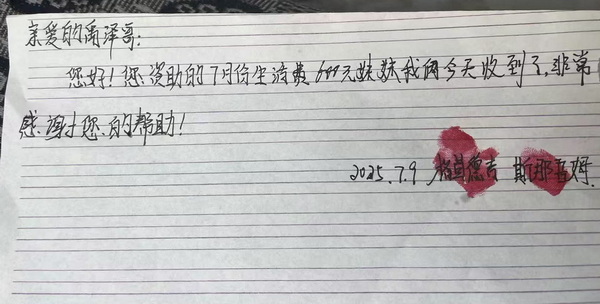 亲爱的禹泽哥:
您好!您资助的7月份生活费600元妹妹我俩今天收到了,非常
感谢您的帮助!
2025.7.9 德吉 斯那吾姆.